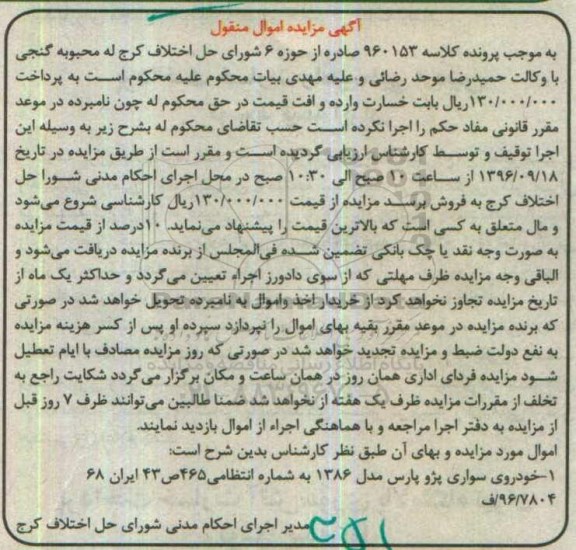 آگهی مزایده اموال منقول
به موجب پرونده کلاسه ۹۶۰۱۵۳ صادره از حوزه ۶ شورای حل اختلاف کرج له محبوبه گنجی
با وکالت حمیدرضا موحد رضائی و علیه مهدی بیات محکوم علیه محکوم است به پرداخت
۱۳۰/۰۰۰/۰۰۰ریال بابت خسارت وارده و افت قیمت در حق محکوم له چون نامبرده در موعد
مقرر قانونی مفاد حکم را اجرا نکرده است حسب تقاضای محکوم له بشرح زیر به وسیله این
اجرا توقیف و توسط کارشناس ارزیابی گردیده است و مقرر است از طریق مزایده در تاریخ
۱۳۹۶/۰۹/۱۸ از ساعت ۱۰ صبح الی ۱۰:۳۰ صبح در محل اجرای احکام مدنی شورا حل
اختلاف کرج به فروش برسد مزایده از قیمت ۱۳۰/۰۰۰/۰۰۰ریال کارشناسی شروع می‌شود
و مال متعلق به کسی است که بالاترین قیمت را پیشنهاد می‌نماید. ۱۰درصد از قیمت مزایده
به صورت وجه نقد یا چک بانکی تضمین شده فی‌المجلس از برنده مزایده دریافت می‌شود و
الباقی وجه مزایده ظرف مهلتی که از سوی دادورز اجراء تعیین می‌گردد و حداکثر یک ماه از
تاریخ مزایده تجاوز نخواهد کرد از خریدار اخذ واموال به نامبرده تحویل خواهد شد در صورتی
که برنده مزایده در موعد مقرر بقیه بهای اموال را نپردازد سپرده او پس از کسر هزینه مزایده
به نفع دولت ضبط و مزایده تجدید خواهد شد در صورتی که روز مزایده مصادف با ایام تعطیل
شود مزایده فردای اداری همان روز در همان ساعت و مکان برگزار می‌گردد شکایت راجع به
تخلف از مقررات مزایده ظرف یک هفته از نخواهد شد ضمنا طالبین می‌توانند ظرف ۷ روز قبل
از مزایده به دفتر اجرا مراجعه و با هماهنگی اجراء از اموال بازدید نمایند.
اموال مورد مزایده و بهای آن طبق نظر کارشناس بدین شرح است:
۱-خودروی سواری پژو پارس مدل ۱۳۸۶ به شماره انتظامی۴۶۵ص۴۳ ایران ۶۸
۹۶/۷۸۰۴/ف
مدیر اجرای احکام مدنی شورای حل اختلاف کرج